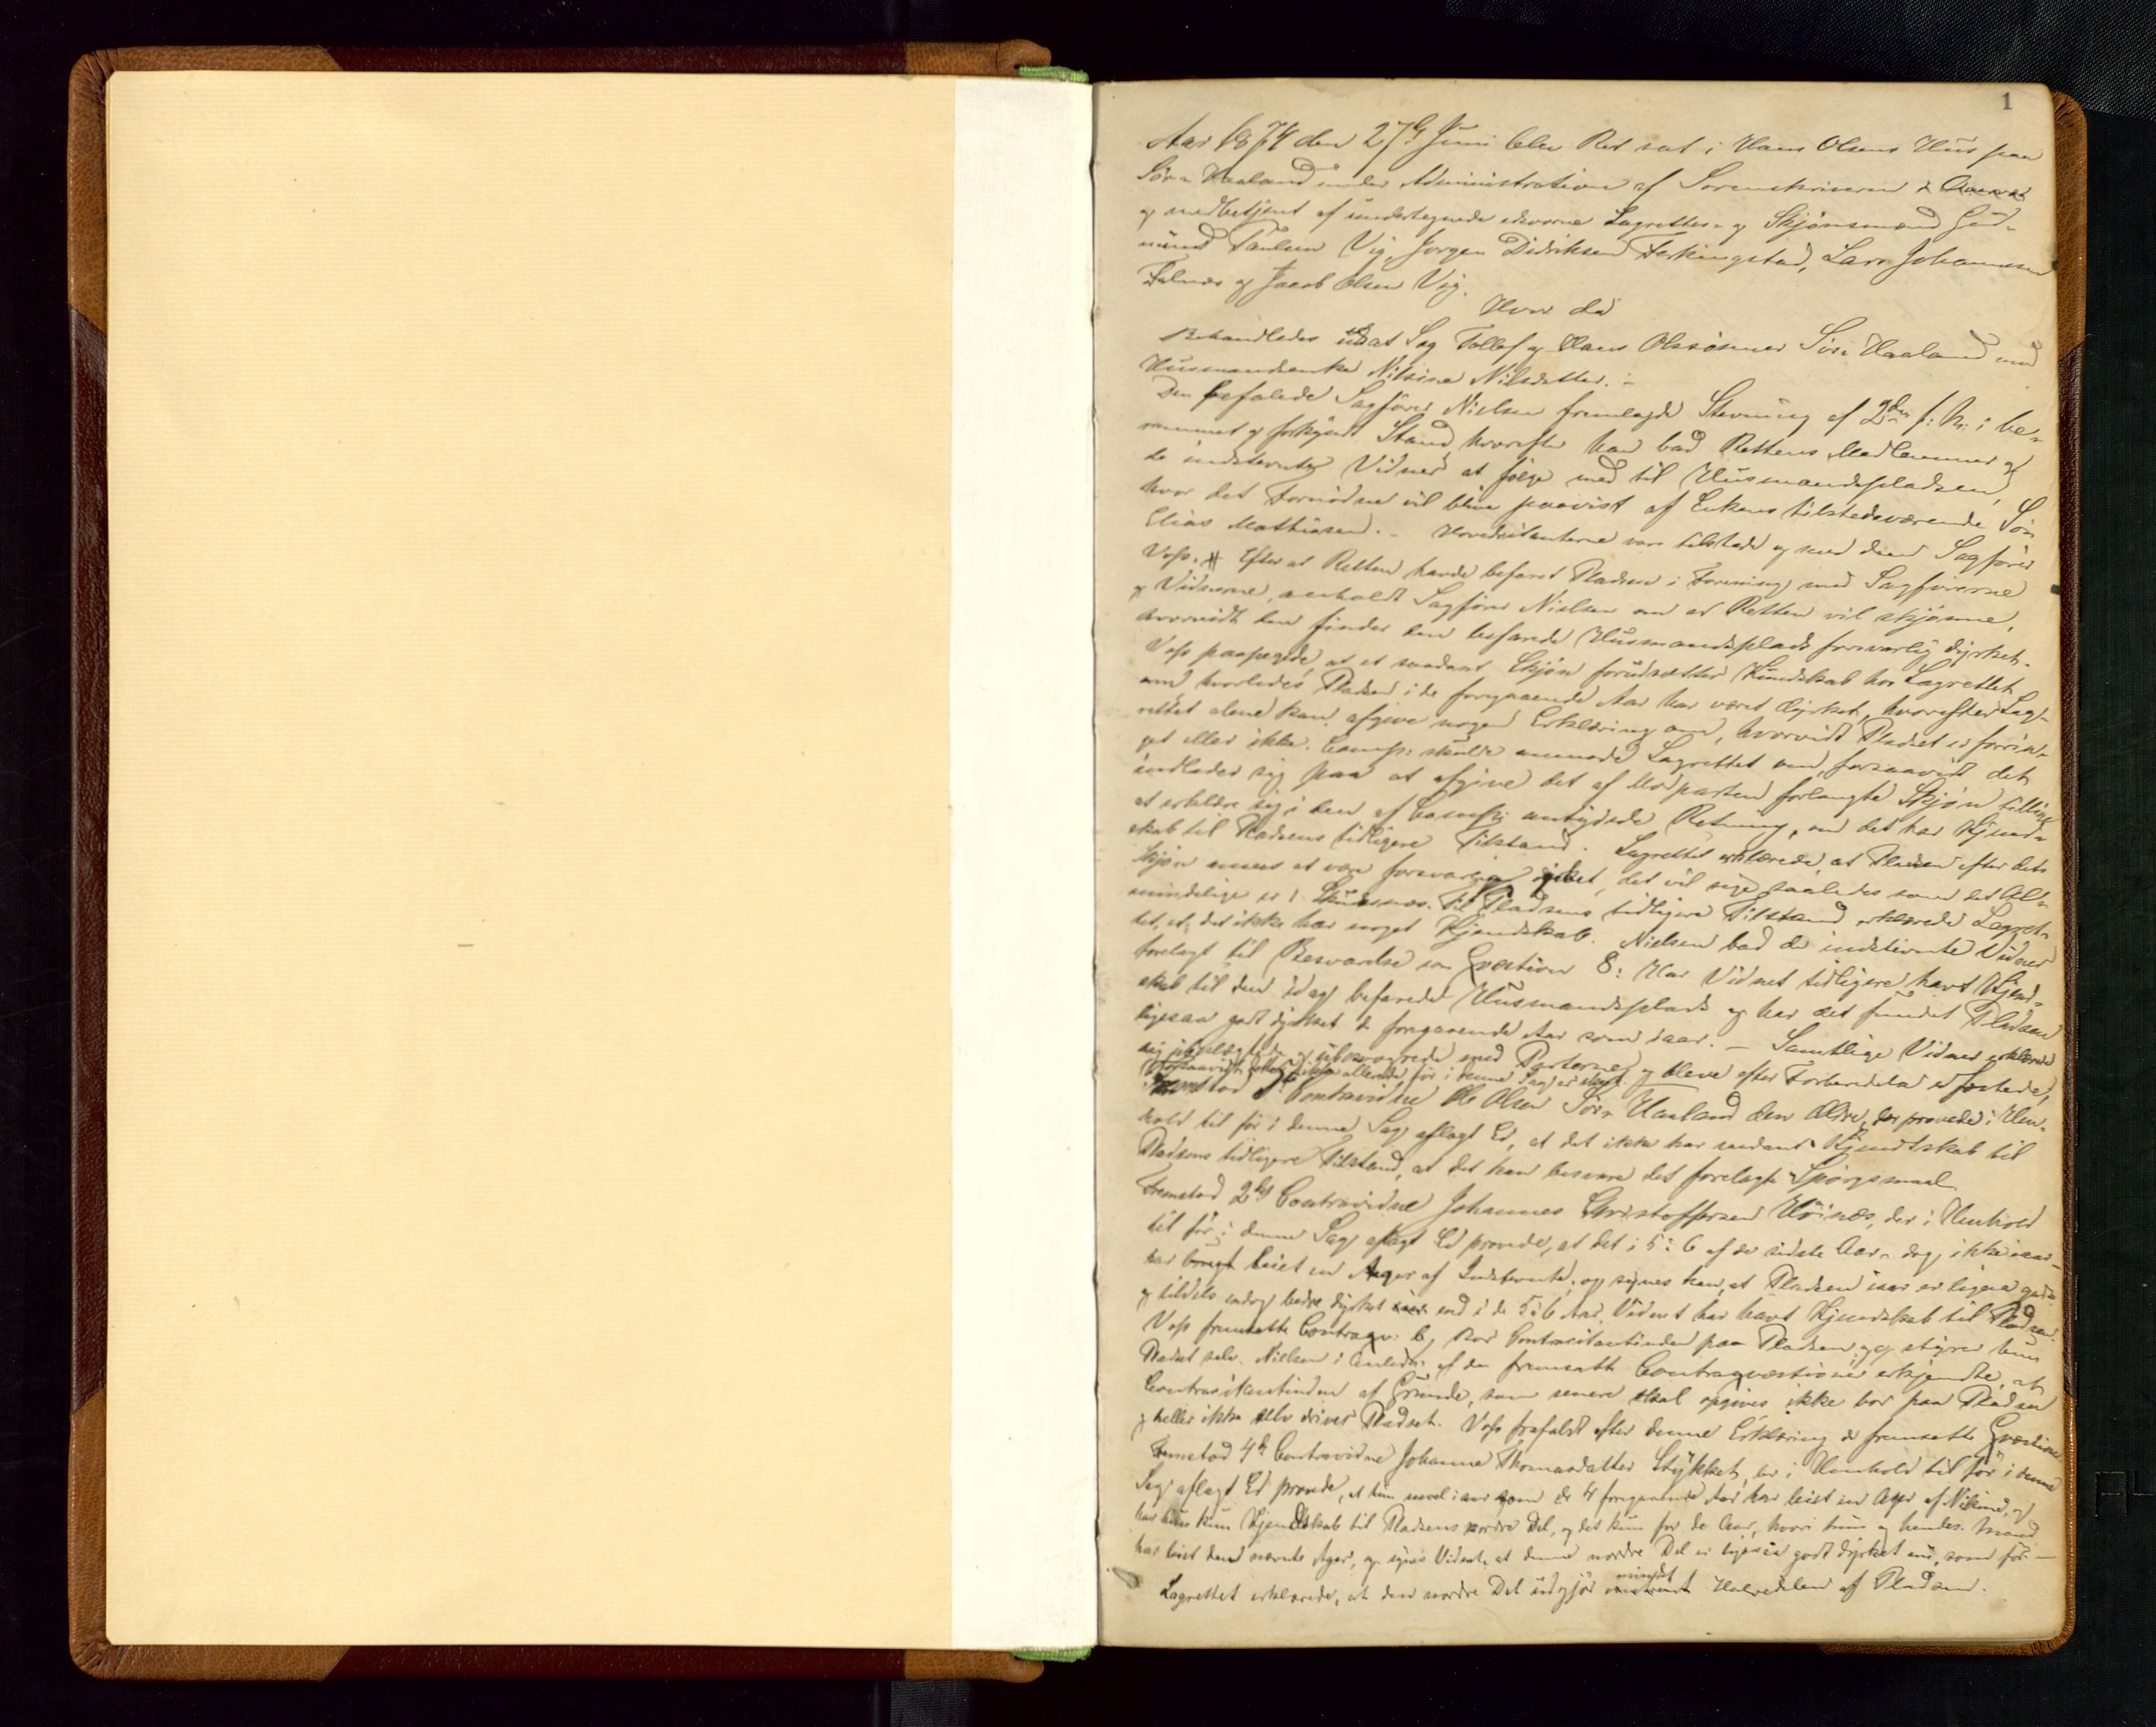 1
Aar 1874 den 27de Juni blev Ret sat i Hans Olsens Hus paa
Sør-Haaland under Administration af Sorenskriveren
og medbetjent af undertegnede edsvorne Lagrettes- og Skjønsmænd Gud-
mund Paulsen Vig, Jørgen Didriksen Ferkingstad, Lars Johannesen
Falnæs og Jacob Olsen Vig.
Hvor da
Behandledes udsat Sag Tollef og Hans Olssønner Sør-Haaland mod
Husmandsenke Nilsine Nilsdatter. -
Den befalede Sagfører Nielsen fremlagde Stevning af 2den f. M. i be-
rammet og forkyndt Stand, hvorefter han bad Rettens Medlemmer og
de indstevnte Vidner at følge med til Husmandspladsen,
hvor det Fornødne vil blive paavist af Enkens tilstedeværende Søn
Elias Mathiasen. - Hovedcitanterne var tilstede og med dem Sagfører
Voss. # Efter at Retten havde befaret Pladsen i Forening med Sagførerne
og Vidnerne, anholdt Sagfører Nielsen om at Retten vil skjønne,
hvorvidt den finder den befarede Husmandsplads forsvarlig dyrket.
Voss paapegede, at et saadant Skjøn forudsætter Kundskab hos Lagrettet
om hvorledes Pladsen i de foregaaende Aar har været dyrket, hvorefter Lag-
rettet alene kan afgive nogen Erklæring om, hvorvidt Pladset er forrin-
get eller ikke. Comp: skulde anmode Lagrettet om, forsaavidt det
indlader sig paa at afgive det af Modparten forlangte Skjøn tillige
at erklære sig i den af Comp: antydede Retning, om det har Kjend-
skab til Pladsens tidligere Tilstand. Lagrettet erklærede, at Pladsen efter dets
Skjøn ansees at være forsvarlig dyrket, det vil sige saaledes som det Al-
mindelige er i Skudesnæs. Til Pladsens tidligere Tilstand erklærede Lagret-
tet, at det ikke har noget Kjendskab. Nielsen bad de indstevnte Vidner
forelagt til Besvarelse som Qvæstion 8: Har Vidnet tidligere havt Kjend-
skab til den idag befarede Husmandsplads og har det fundet Pladsen
ligesaa godt dyrket de foregaaende Aar som iaar. - Samtlige Vidner erklærede
sig ubeslægtede og ubesvogrede med Parterne og bleve efter Forberedelse edfæstede,
forsaavidt dette ikke allerede før i denne Sag er skeet.
Fremstod 1ste Contravidne Ole Olsen Sør-Haaland den Ældre, der provede i Hen-
hold til før i denne Sag aflagt Ed, at det ikke har saadant Kjendskab til
Pladsens tidligere Tilstand, at det kan besvare det forelagte Spørgsmaal.
Fremstod 2det Contravidne Johannes Christoffersen Høinæs, der i Henhold
til før i denne Sag aflagt Ed provede, at det i 5 à 6 af de sidste Aar - dog ikke iaar -
har leiet en Ager af Indstevnte, og synes han, at Pladsen iaar er ligesaa godt
og tildels endog bedre dyrket end i de 5 à 6 Aar, Vidnet har havt Kjendskab til Pladsen.
Voss fremsatte Contraqv: 6, Bor Contracitantinden paa Pladsen og styrer hun
Pladset selv. Nielsen i Anledn. af den fremsatte Contraqvæstion erkjendte, at
Contracitantinden af Grunde, som senere skal opgives ikke bor paa Pladsen
og heller ikke selv driver Pladset. Voss frafaldt efter denne Erklæring de fremsatte Qvæstioner.
Fremstod 4de Contravidne Johanne Thomasdatter Stykket, der i Henhold til før i denne
Sag aflagt Ed provede, at hun saavel iaar som de 4 foregaaende Aar har leiet en Ager af Nilsine, og
har hun kun Kjendskab til Pladsens nordre Del, og det kun for de Aar, hvori hun og hendes Mand
har leiet den nævnte Ager, og synes Vidnet, at denne nordre Del er ligesaa godt dyrket nu, som før. -
Lagrettet erklærede, at den nordre Del udgjør mindst Halvedelen af Pladsen.